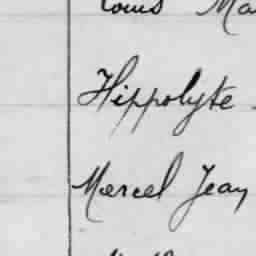 Louis Ma
Hippolyte
Marcel Jean